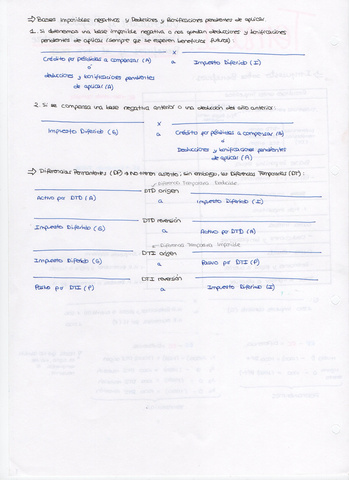 ⇒ Bases imponibles negativas y Deducciones y Bonificaciones pendientes de aplicar.
1. Si obtenemos una base imponible negativa o nos quedan deducciones y bonificaciones
pendientes de aplicar (siempre que se esperen beneficios futuros):
x
Crédito por pérdidas a compensar (A) a Impuesto Diferido (I)
o
deducciones y bonificaciones pendientes
de aplicar (A)
2. Si se compensa una base negativa anterior o una deducción del año anterior:
x
Impuesto Diferido (G) a Crédito por pérdidas a compensar (A)
o
Deducciones y bonificaciones pendientes
de aplicar (A)
⇒ Diferencias Permanentes (DP) no tienen asiento; sin embargo, las Diferencias Temporarias (DT):
Diferencia Temporaria Deducible
DTD origen
Activo por DTD (A) a Impuesto Diferido (I)
DTD reversión
Impuesto Diferido (G) a Activo por DTD (A)
Diferencia Temporaria Imponible
DTI origen
Impuesto Diferido (G) a Pasivo por DTI (P)
DTI reversión
Pasivo por DTI (P) a Impuesto Diferido (I)